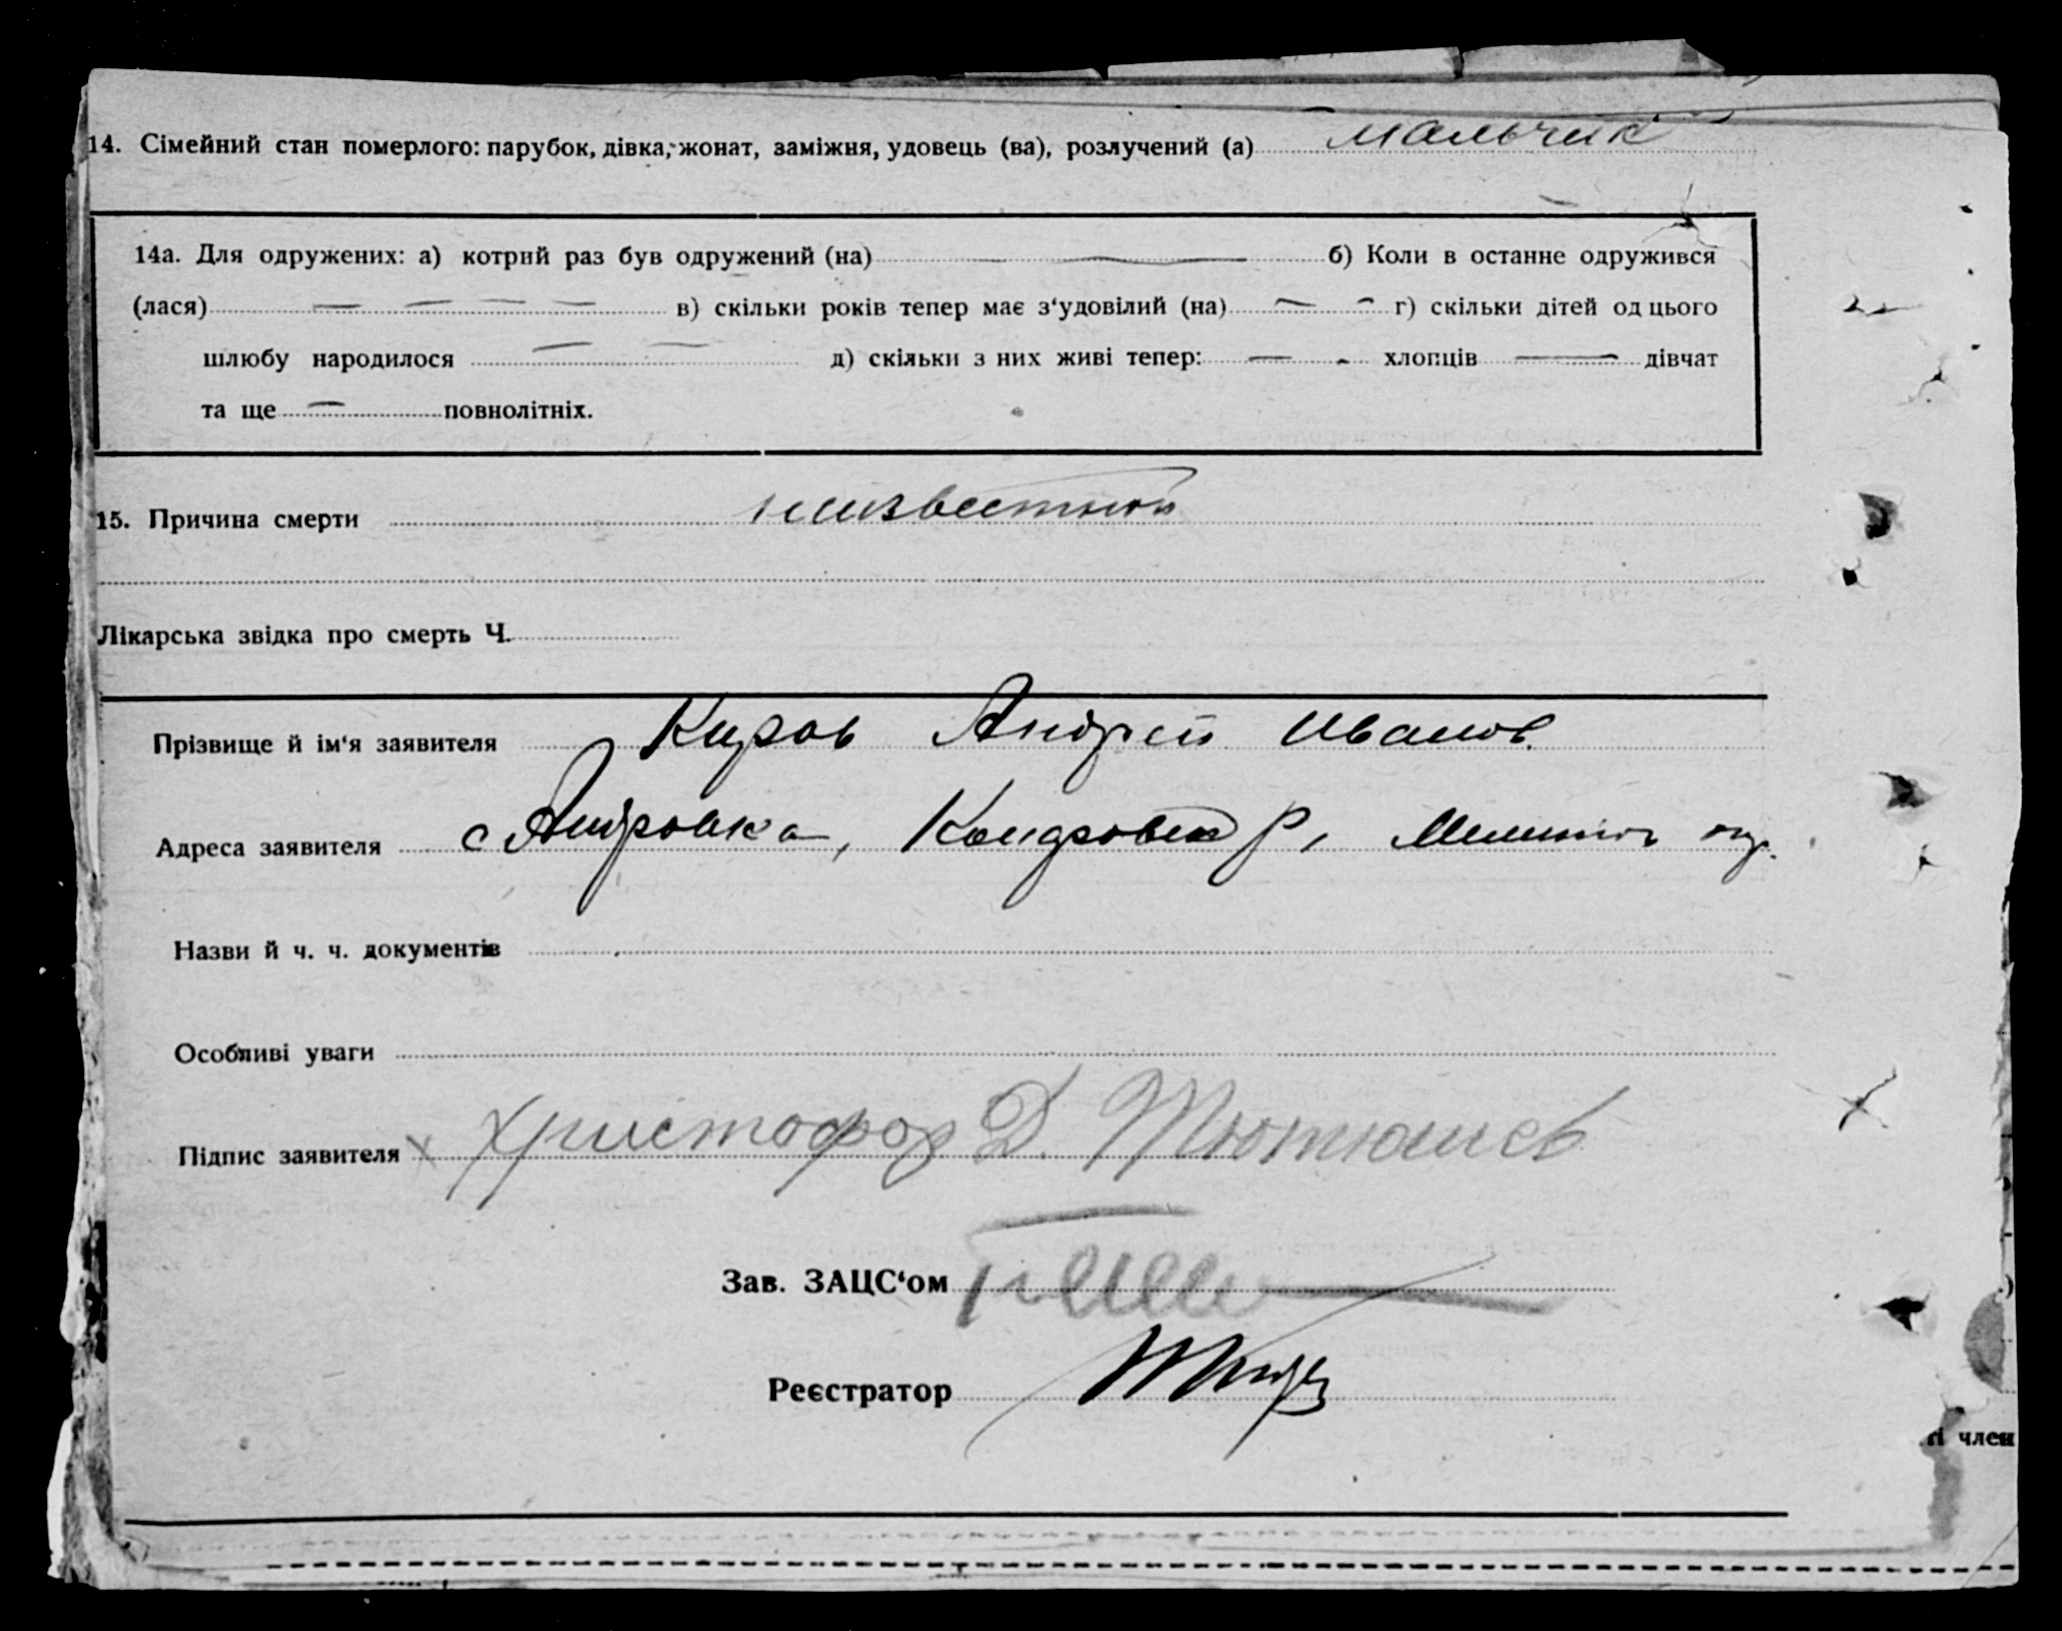 14. Сімейний стан померлого: парубок, дівка, жонат, заміжня, удовець (ва), розлучений (а) мальчик
14а. Для одружених: а) котрий раз був одружений (на) — б) Коли в останне одружився
(лася) — — — — в) скільки років тепер має з‘удовілий (на) — — г) скільки дітей од цього
шлюбу народилося — — д) скільки з них живі тепер: — - хлопців — дівчат
та ще — повнолітніх.
15. Причина смерти неизвестной
Лікарська звідка про смерть Ч.
Прізвище й ім‘я заявителя Киров Андрей Иванов.
Адреса заявителя с Андровка, р,
Назви й ч. ч. документів
Особливі уваги
Підпис заявителя х Христофор Д. Тютюнев
Зав. ЗАЦС‘ом
Реєстратор
і член